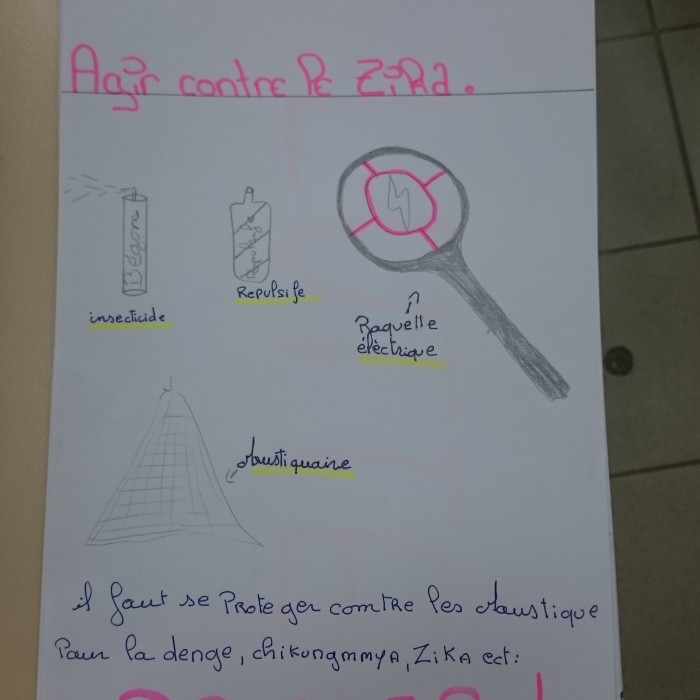 Agir contre le Zika.
Bégon
Repulsife
insecticide
Repulsife
Raquelle
élèctrique
Moustiquaire
il faut se Proteger comtre les Moustique
Pour la denge, chikungmmya, Zika ect: